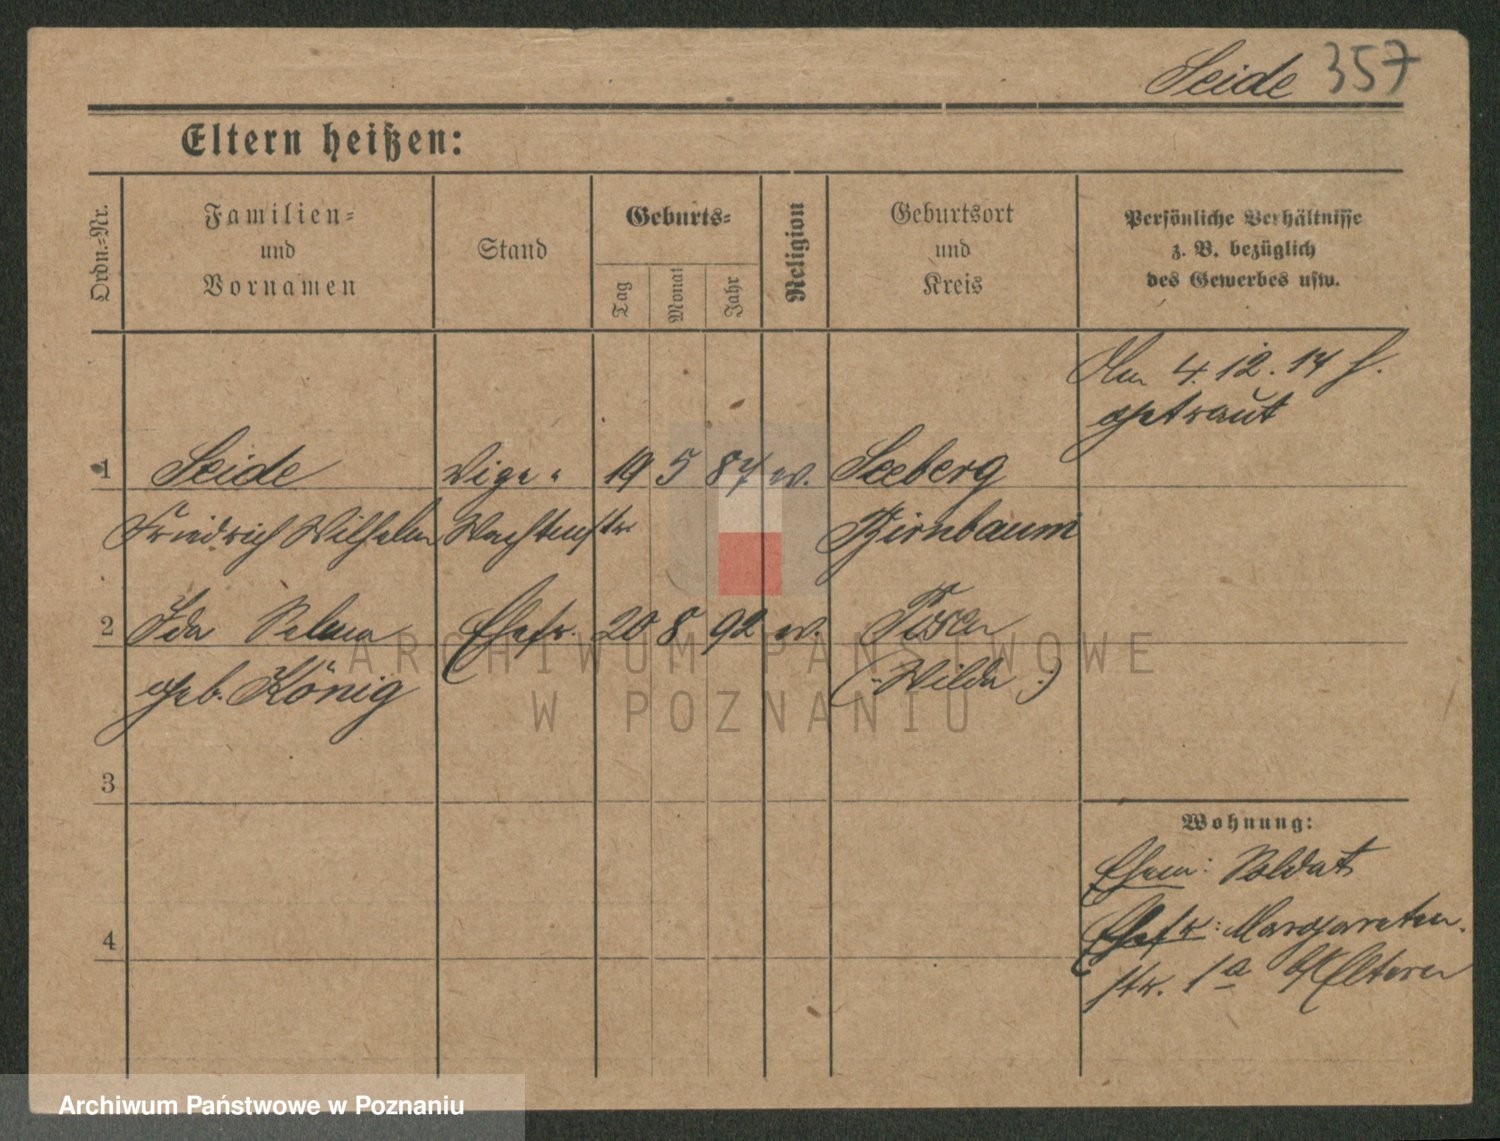 Seide 357
Eltern heißen:
Ordn.-Nr.
Familien-
und
Vornamen
Stand
Geburts-
Tag
Monat
Jahr
Religion
Geburtsort
und
Kreis
Persönliche Verhältnisse
z. B. bezüglich
des Gewerbes usw.
Am 4.12.14 h.
getraut
1 Seide Vize- 19 5 87 ev. Seeberg
Friedrich Wilhelm Wachtmstr. Birnbaum
2 Ida Selma Ehefr. 20 8 92 ev. Posen
geb. König (Wilda)
3
4
Wohnung:
Ehem: Soldat
Ehefr: Margareten-
str. 1a b/Eltern
ARCHIWUM PAŃSTWOWE
W POZNANIU
Archiwum Państwowe w Poznaniu